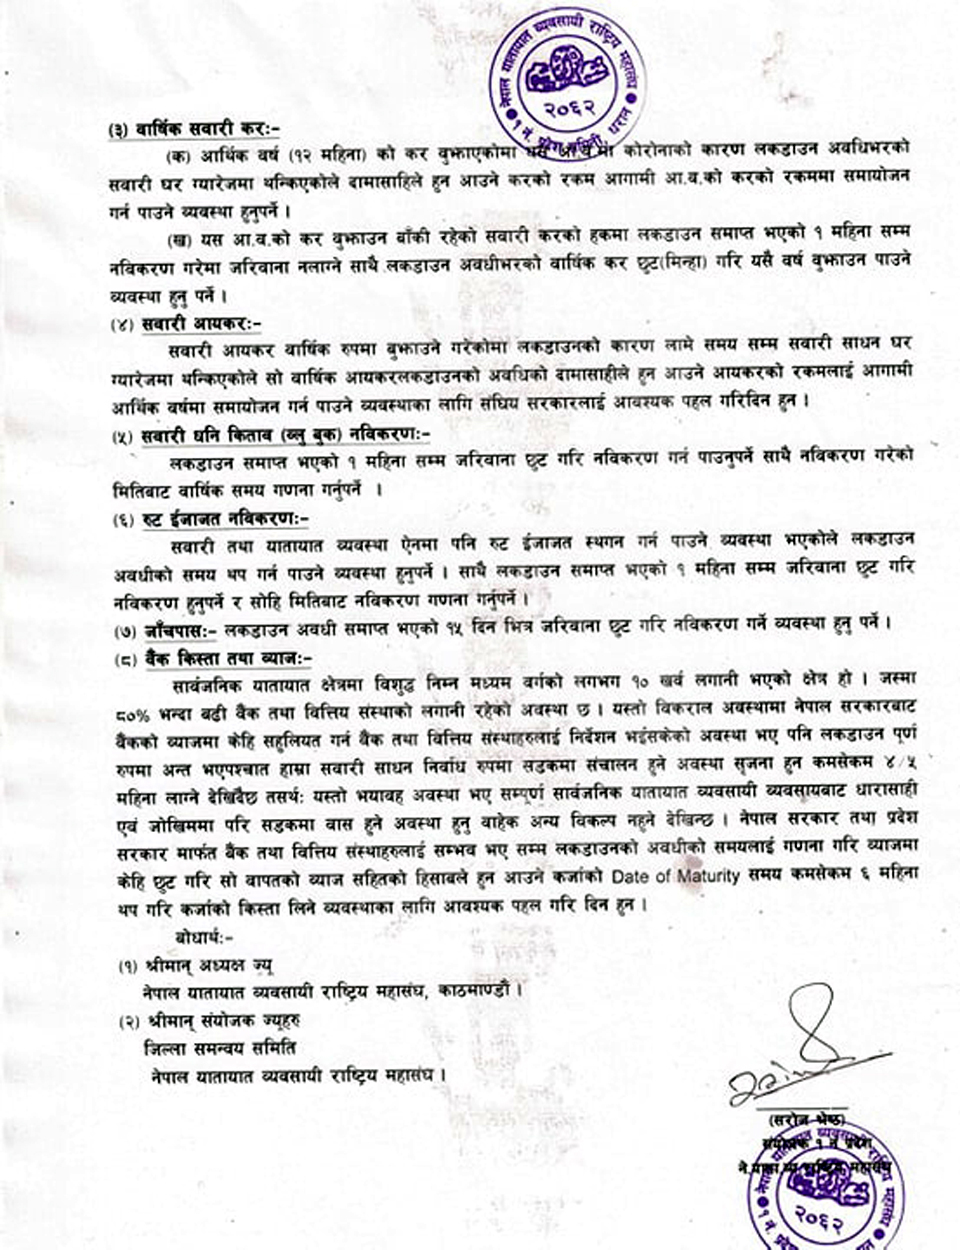 नेपाल यातायात व्यवसायी राष्ट्रिय महासंघ
२०६२
१ नं. प्रदेश समिती, धरान
(३) वार्षिक सवारी करः-
(क) आर्थिक वर्ष (१२ महिना) को कर वुझाएकोमा यस आ.व.मा कोरोनाको कारण लकडाउन अवधिभरको
सवारी घर ग्यारेजमा थन्किएकोले दामासाहिले हुन आउने करको रकम आगामी आ.व.को करको रकममा समायोजन
गर्न पाउने व्यवस्था हुनुपर्ने ।
(ख) यस आ.व.को कर वुझाउन बाँकी रहेको सवारी करको हकमा लकडाउन समाप्त भएको १ महिना सम्म
नविकरण गरेमा जरिवाना नलाग्ने साथै लकडाउन अवधीभरको वार्षिक कर छुट(मिन्हा) गरि यसै वर्ष वुझाउन पाउने
व्यवस्था हुनु पर्ने ।
(४) सवारी आयकरः-
सवारी आयकर वार्षिक रुपमा वुझाउने गरेकोमा लकडाउनको कारण लामो समय सम्म सवारी साधन घर
ग्यारेजमा थन्किएकोले सो वार्षिक आयकरलकडाउनको अवधिको दामासाहीले हुन आउने आयकरको रकमलाई आगामी
आर्थिक वर्षमा समायोजन गर्न पाउने व्यवस्थाका लागि संघिय सरकारलाई आवश्यक पहल गरिदिन हुन ।
(५) सवारी धनि किताव (व्लु बुक) नविकरणः-
लकडाउन समाप्त भएको १ महिना सम्म जरिवाना छुट गरि नविकरण गर्न पाउनुपर्ने साथै नविकरण गरेको
मितिबाट वार्षिक समय गणना गर्नुपर्ने ।
(६) रुट ईजाजत नविकरणः-
सवारी तथा यातायात व्यवस्था ऐनमा पनि रुट ईजाजत स्थगन गर्न पाउने व्यवस्था भएकोले लकडाउन
अवधीको समय थप गर्न पाउने व्यवस्था हुनुपर्ने । साथै लकडाउन समाप्त भएको १ महिना सम्म जरिवाना छुट गरि
नविकरण हुनुपर्ने र सोहि मितिबाट नविकरण गणना गर्नुपर्ने ।
(७) जाँचपासः- लकडाउन अवधी समाप्त भएको १५ दिन भित्र जरिवाना छुट गरि नविकरण गर्ने व्यवस्था हुनु पर्ने ।
(८) वैंक किस्ता तथा व्याजः-
सार्वजनिक यातायात क्षेत्रमा विशुद्ध निम्न मध्यम वर्गको लगभग १० खर्व लगानी भएको क्षेत्र हो । जस्मा
८०% भन्दा बढी वैंक तथा वित्तिय संस्थाको लगानी रहेको अवस्था छ । यस्तो विकराल अवस्थामा नेपाल सरकारबाट
वैंकको व्याजमा केहि सहुलियत गर्न वैंक तथा वित्तिय संस्थाहरुलाई निर्देशन भईसकेको अवस्था भए पनि लकडाउन पूर्ण
रुपमा अन्त भएपश्चात हाम्रा सवारी साधन निर्वाध रुपमा सडकमा संचालन हुने अवस्था सृजना हुन कमसेकम ४/५
महिना लाग्ने देखिदैछ तसर्थः यस्तो भयावह अवस्था भए सम्पूर्ण सार्वजनिक यातायात व्यवसायी व्यवसायबाट धारासाही
एवं जोखिममा परि सडकमा वास हुने अवस्था हुनु वाहेक अन्य विकल्प नहुने देखिन्छ । नेपाल सरकार तथा प्रदेश
सरकार मार्फत वैंक तथा वित्तिय संस्थाहरुलाई सम्भव भए सम्म लकडाउनको अवधीको समयलाई गणना गरि व्याजमा
केहि छुट गरि सो वापतको व्याज सहितको हिसाबले हुन आउने कर्जाको Date of Maturity समय कमसेकम ६ महिना
थप गरि कर्जाको किस्ता लिने व्यवस्थाका लागि आवश्यक पहल गरि दिन हुन ।
बोधार्थः-
(१) श्रीमान् अध्यक्ष ज्यू
नेपाल यातायात व्यवसायी राष्ट्रिय महासंघ, काठमाण्डौ ।
(२) श्रीमान् संयोजक ज्यूहरु
जिल्ला समन्वय समिति
नेपाल यातायात व्यवसायी राष्ट्रिय महासंघ ।
(सरोज श्रेष्ठ)
संयोजक १ नं प्रदेश
राष्ट्रिय महासंघ
नेपाल यातायात व्यवसायी राष्ट्रिय महासंघ
२०६२